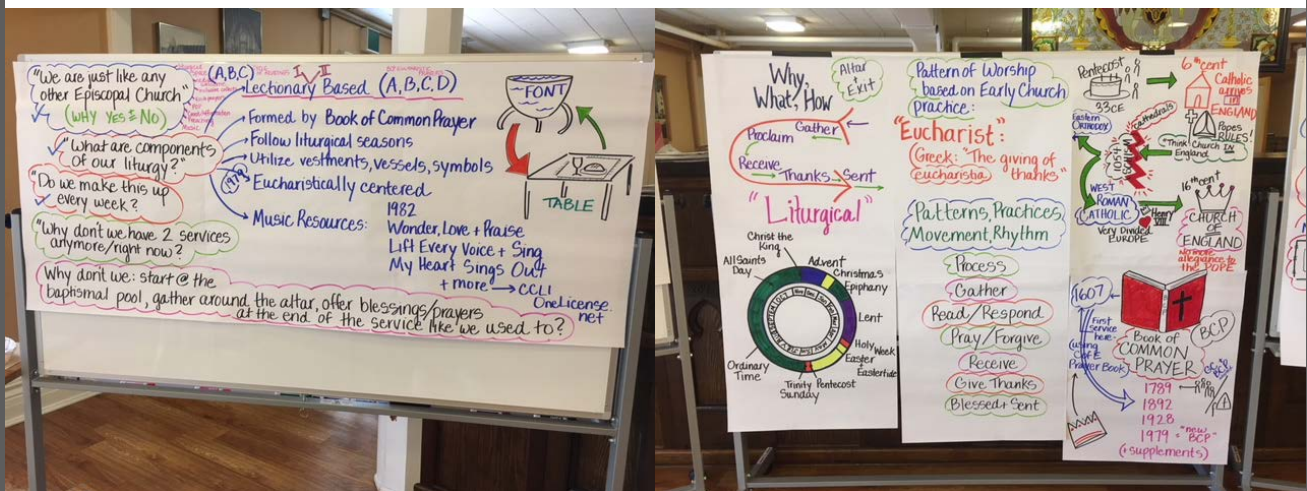 "We are just like any
other Episcopal Church"
(WHY YES & NO)
"What are components
of our liturgy?"
"Do we make this up
every week?
"Why don't we have 2 services
anymore/right now?
Why don't we: start @ the
baptismal pool, gather around the altar, offer blessings/prayers
at the end of the service like we used to?
(A,B,C)
I II
Lectionary Based (A,B,C,D)
Formed by Book of Common Prayer
Follow liturgical seasons
Utilize vestments, vessels, symbols
(1979)
Eucharistically centered
Music Resources:
1982
Wonder, Love + Praise
Lift Every Voice + Sing
My Heart Sings Out
+ more → CCLI
OneLicense.
net
FONT
TABLE
Why,
What, How
Altar
+
Exit
Gather
Proclaim
Receive
Thanks
Sent
"Liturgical"
Christ the
King
All Saints
Day
Advent
Christmas
Epiphany
Lent
Holy Week
Easter
+
Eastertide
Pentecost
Trinity
Sunday
Ordinary
Time
Pattern of Worship
based on Early Church
practice:
"Eucharist":
Greek: "The giving of
eucharistia thanks"
Patterns, Practices,
Movement, Rhythm
Process
Gather
Read/Respond
Pray/Forgive
Receive
Give Thanks
Blessed + Sent
Pentecost
33CE
6th cent
Catholic
arrives
in
ENGLAND
Eastern
ORTHODOXY
Cathedrals
Popes
RULES!
Think Church IN
England
WEST
ROMAN
CATHOLIC
Very Divided
EUROPE
Henry
VIII
16th cent
CHURCH
OF
ENGLAND
No more
allegiance to
the POPE
1607
First
service
here:
(using
C of E
Prayer Book)
BCP
Book of
COMMON
PRAYER
1789
1892
1928
1979 = "new
BCP"
(+supplements)